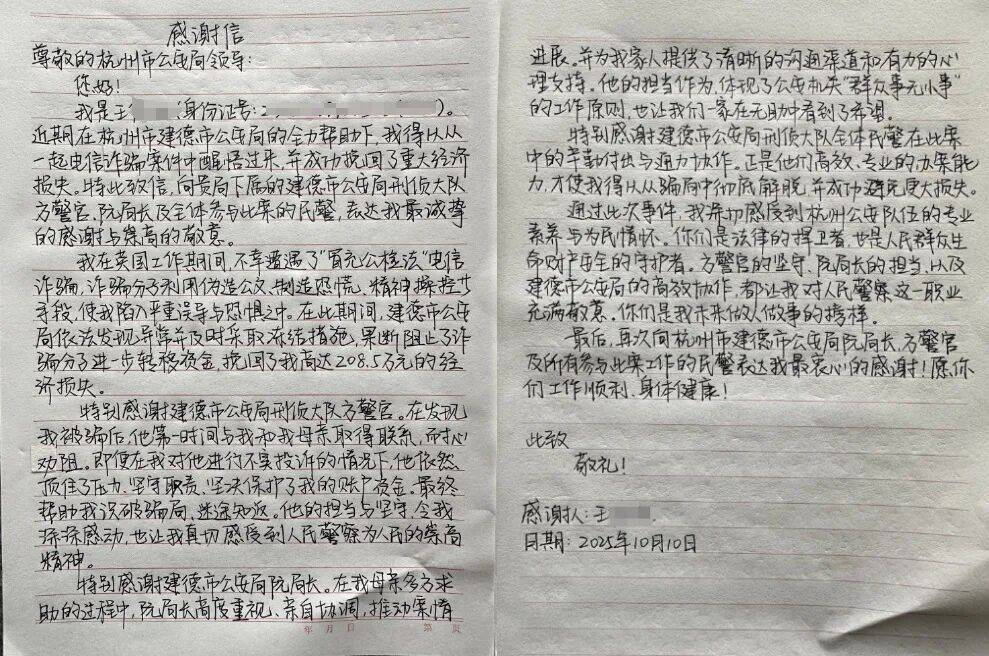 感谢信
尊敬的杭州市公安局领导:
您好!
我是王 (身份证号:2 )。
近期在杭州市建德市公安局的全力帮助下,我得以从
一起电信诈骗案件中醒悟过来,并成功挽回了重大经济
损失。特此致信,向贵局下属的建德市公安局刑侦大队
方警官、阮局长及全体参与此案的民警,表达我最诚挚
的感谢与崇高的敬意。
我在英国工作期间,不幸遭遇了"冒充公检法"电信
诈骗,诈骗分子利用伪造公文、制造恐慌、精神操控等
手段,使我陷入严重误导与恐惧之中。在此期间,建德市公安
局依法发现异常并及时采取冻结措施,果断阻止了诈
骗分子进一步转移资金,挽回了我高达208.5万元的经
济损失。
特别感谢建德市公安局刑侦大队方警官。在发现
我被骗后,他第一时间与我和我母亲取得联系,耐心
劝阻。即便在我对他进行不实投诉的情况下,他依然
顶住了压力、坚守职责、坚决保护了我的账户资金。最终
帮助我识破骗局、迷途知返。他的担当与坚守,令我
深深感动,也让我真切感受到人民警察为人民的崇高
精神。
特别感谢建德市公安局阮局长。在我母亲多方求
助的过程中,阮局长高度重视、亲自协调,推动案情
年 月 日 第 页
进展。并为我家人提供了清晰的沟通渠道和有力的心
理支持。他的担当作为,体现了公安机关"群众事无小事"
的工作原则,也让我们一家在无助中看到了希望。
特别感谢建德市公安局刑侦大队全体民警在此案
中的辛勤付出与通力协作。正是他们高效、专业的办案能
力,才使我得以从骗局中彻底解脱,并成功避免更大损失。
通过此次事件,我深切感受到杭州公安队伍的专业
素养与为民情怀。你们是法律的捍卫者,也是人民群众生
命财产安全的守护者。方警官的坚守、阮局长的担当,以及
建德市公安局的高效协作,都让我对人民警察这一职业
充满敬意。你们是我未来做人做事的榜样。
最后,再次向杭州市建德市公安局阮局长、方警官
及所有参与此案工作的民警表达我最衷心的感谢!愿你
们工作顺利、身体健康!
此致
敬礼!
感谢人:王
日期:2025年10月10日